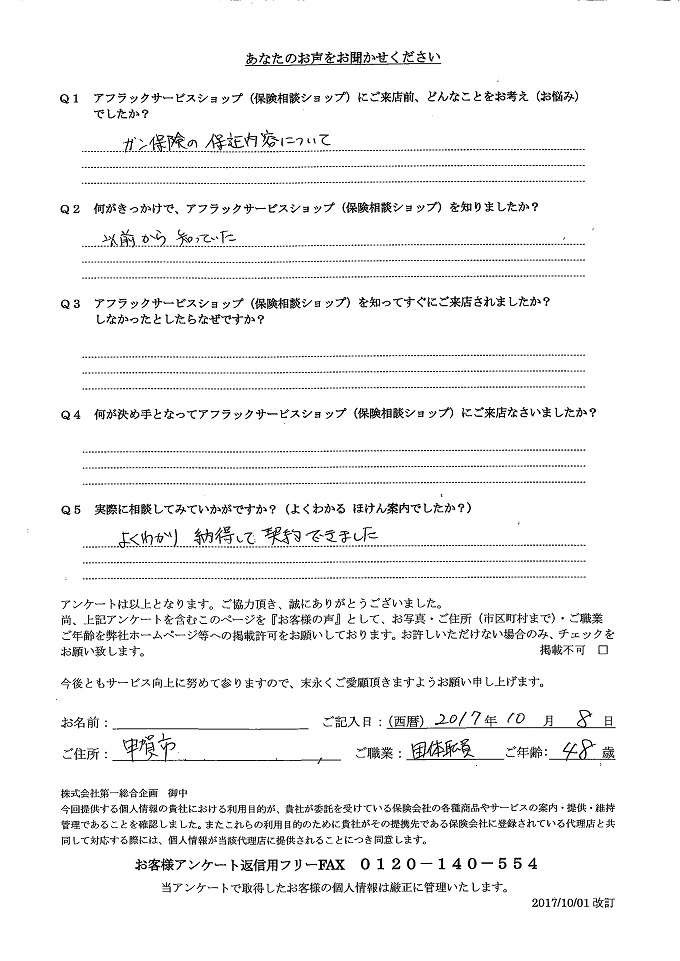 あなたのお声をお聞かせください
Q1 アフラックサービスショップ（保険相談ショップ）にご来店前、どんなことをお考え（お悩み）
でしたか？
ガン保険の保証内容について
Q2 何がきっかけで、アフラックサービスショップ（保険相談ショップ）を知りましたか？
以前から知っていた
Q3 アフラックサービスショップ（保険相談ショップ）を知ってすぐにご来店されましたか？
しなかったとしたらなぜですか？
Q4 何が決め手となってアフラックサービスショップ（保険相談ショップ）にご来店なさいましたか？
Q5 実際に相談してみていかがですか？（よくわかる ほけん案内でしたか？）
よくわかり 納得して契約できました
アンケートは以上となります。ご協力頂き、誠にありがとうございました。
尚、上記アンケートを含むこのページを『お客様の声』として、お写真・ご住所（市区町村まで）・ご職業
ご年齢を弊社ホームページ等への掲載許可をお願いしております。お許しいただけない場合のみ、チェックを
お願い致します。 掲載不可 □
今後ともサービス向上に努めて参りますので、末永くご愛顧頂きますようお願い申し上げます。
お名前： ご記入日：（西暦） 2017年 10月 8日
ご住所： 甲賀市 ご職業： 団体職員 ご年齢： 48歳
株式会社第一総合企画 御中
今回提供する個人情報の貴社における利用目的が、貴社が委託を受けている保険会社の各種商品やサービスの案内・提供・維持
管理であることを確認しました。またこれらの利用目的のために貴社がその提携先である保険会社に登録されている代理店と共
同して対応する際には、個人情報が当該代理店に提供されることにつき同意します。
お客様アンケート返信用フリーFAX 0120－140－554
当アンケートで取得したお客様の個人情報は厳正に管理いたします。
2017/10/01 改訂